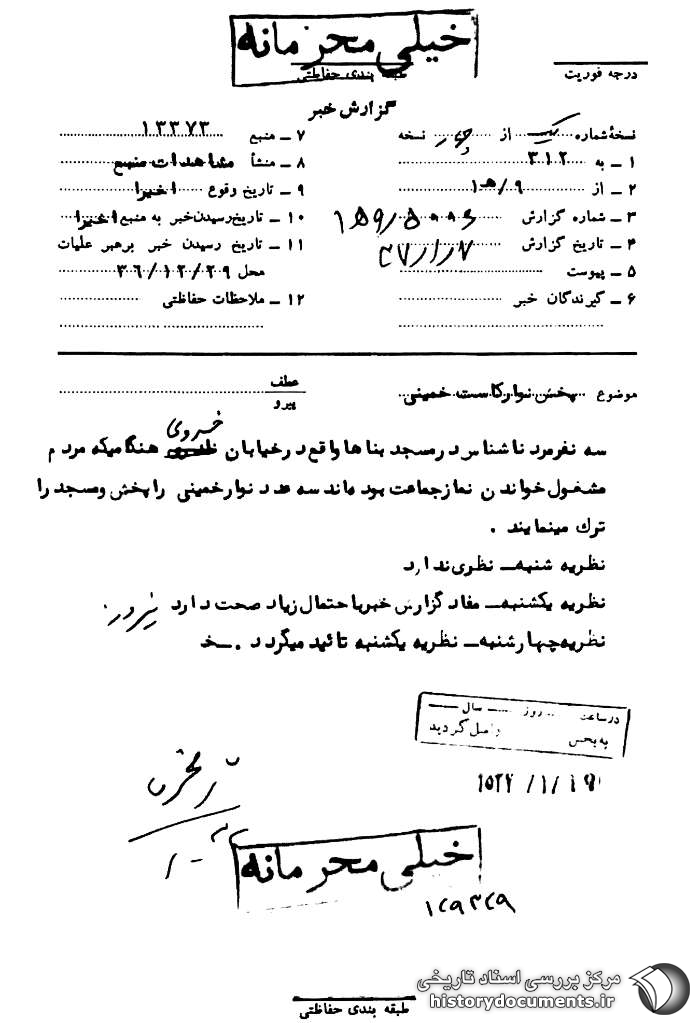 خیلی محرمانه
طبقه بندی حفاظتی
درجه فوریت
گزارش خبر
نسخه شماره یک از چهار نسخه
۱ ــ به ۳۱۲
۲ ــ از ۹/ھ۱
۳ ــ شماره گزارش
۴ ــ تاریخ گزارش ۳۷/۱/۷
۵ ــ پیوست
۶ ــ گیرندگان خبر
۷ ــ منبع ۱۳۳۷۳
۸ ــ منشأ مشاهدات منبع
۹ ــ تاریخ وقوع اخیرا
۱۰ ــ تاریخ رسیدن خبر به منبع اخیرا
۱۱ ــ تاریخ رسیدن خبر برهبر علیات
محل ۳۶/۱۲/۲۹
۱۲ ــ ملاحظات حفاظتی
موضوع پخش نوارکاست خمینی
عطف
پیرو
سه نفرمرد ناشناس درمسجد بناها واقع درخیابان خسروی هنگامیکه مردم
مشغول خواندن نمازجماعت بوده‌اند سه عدد نوارخمینی را پخش ومسجد را
ترك مینمایند .
نظریه شنبه ــ نظری ندارد
نظریه یکشنبه ــ مفاد گزارش خبر با احتمال زیاد صحت دارد
نظریه چهارشنبه ــ نظریه یکشنبه تائید میگردد .
درساعت روز سال
به بخش واصل گردید
خیلی محرمانه
طبقه بندی حفاظتی
مرکز بررسی اسناد تاریخی
historydocuments.ir